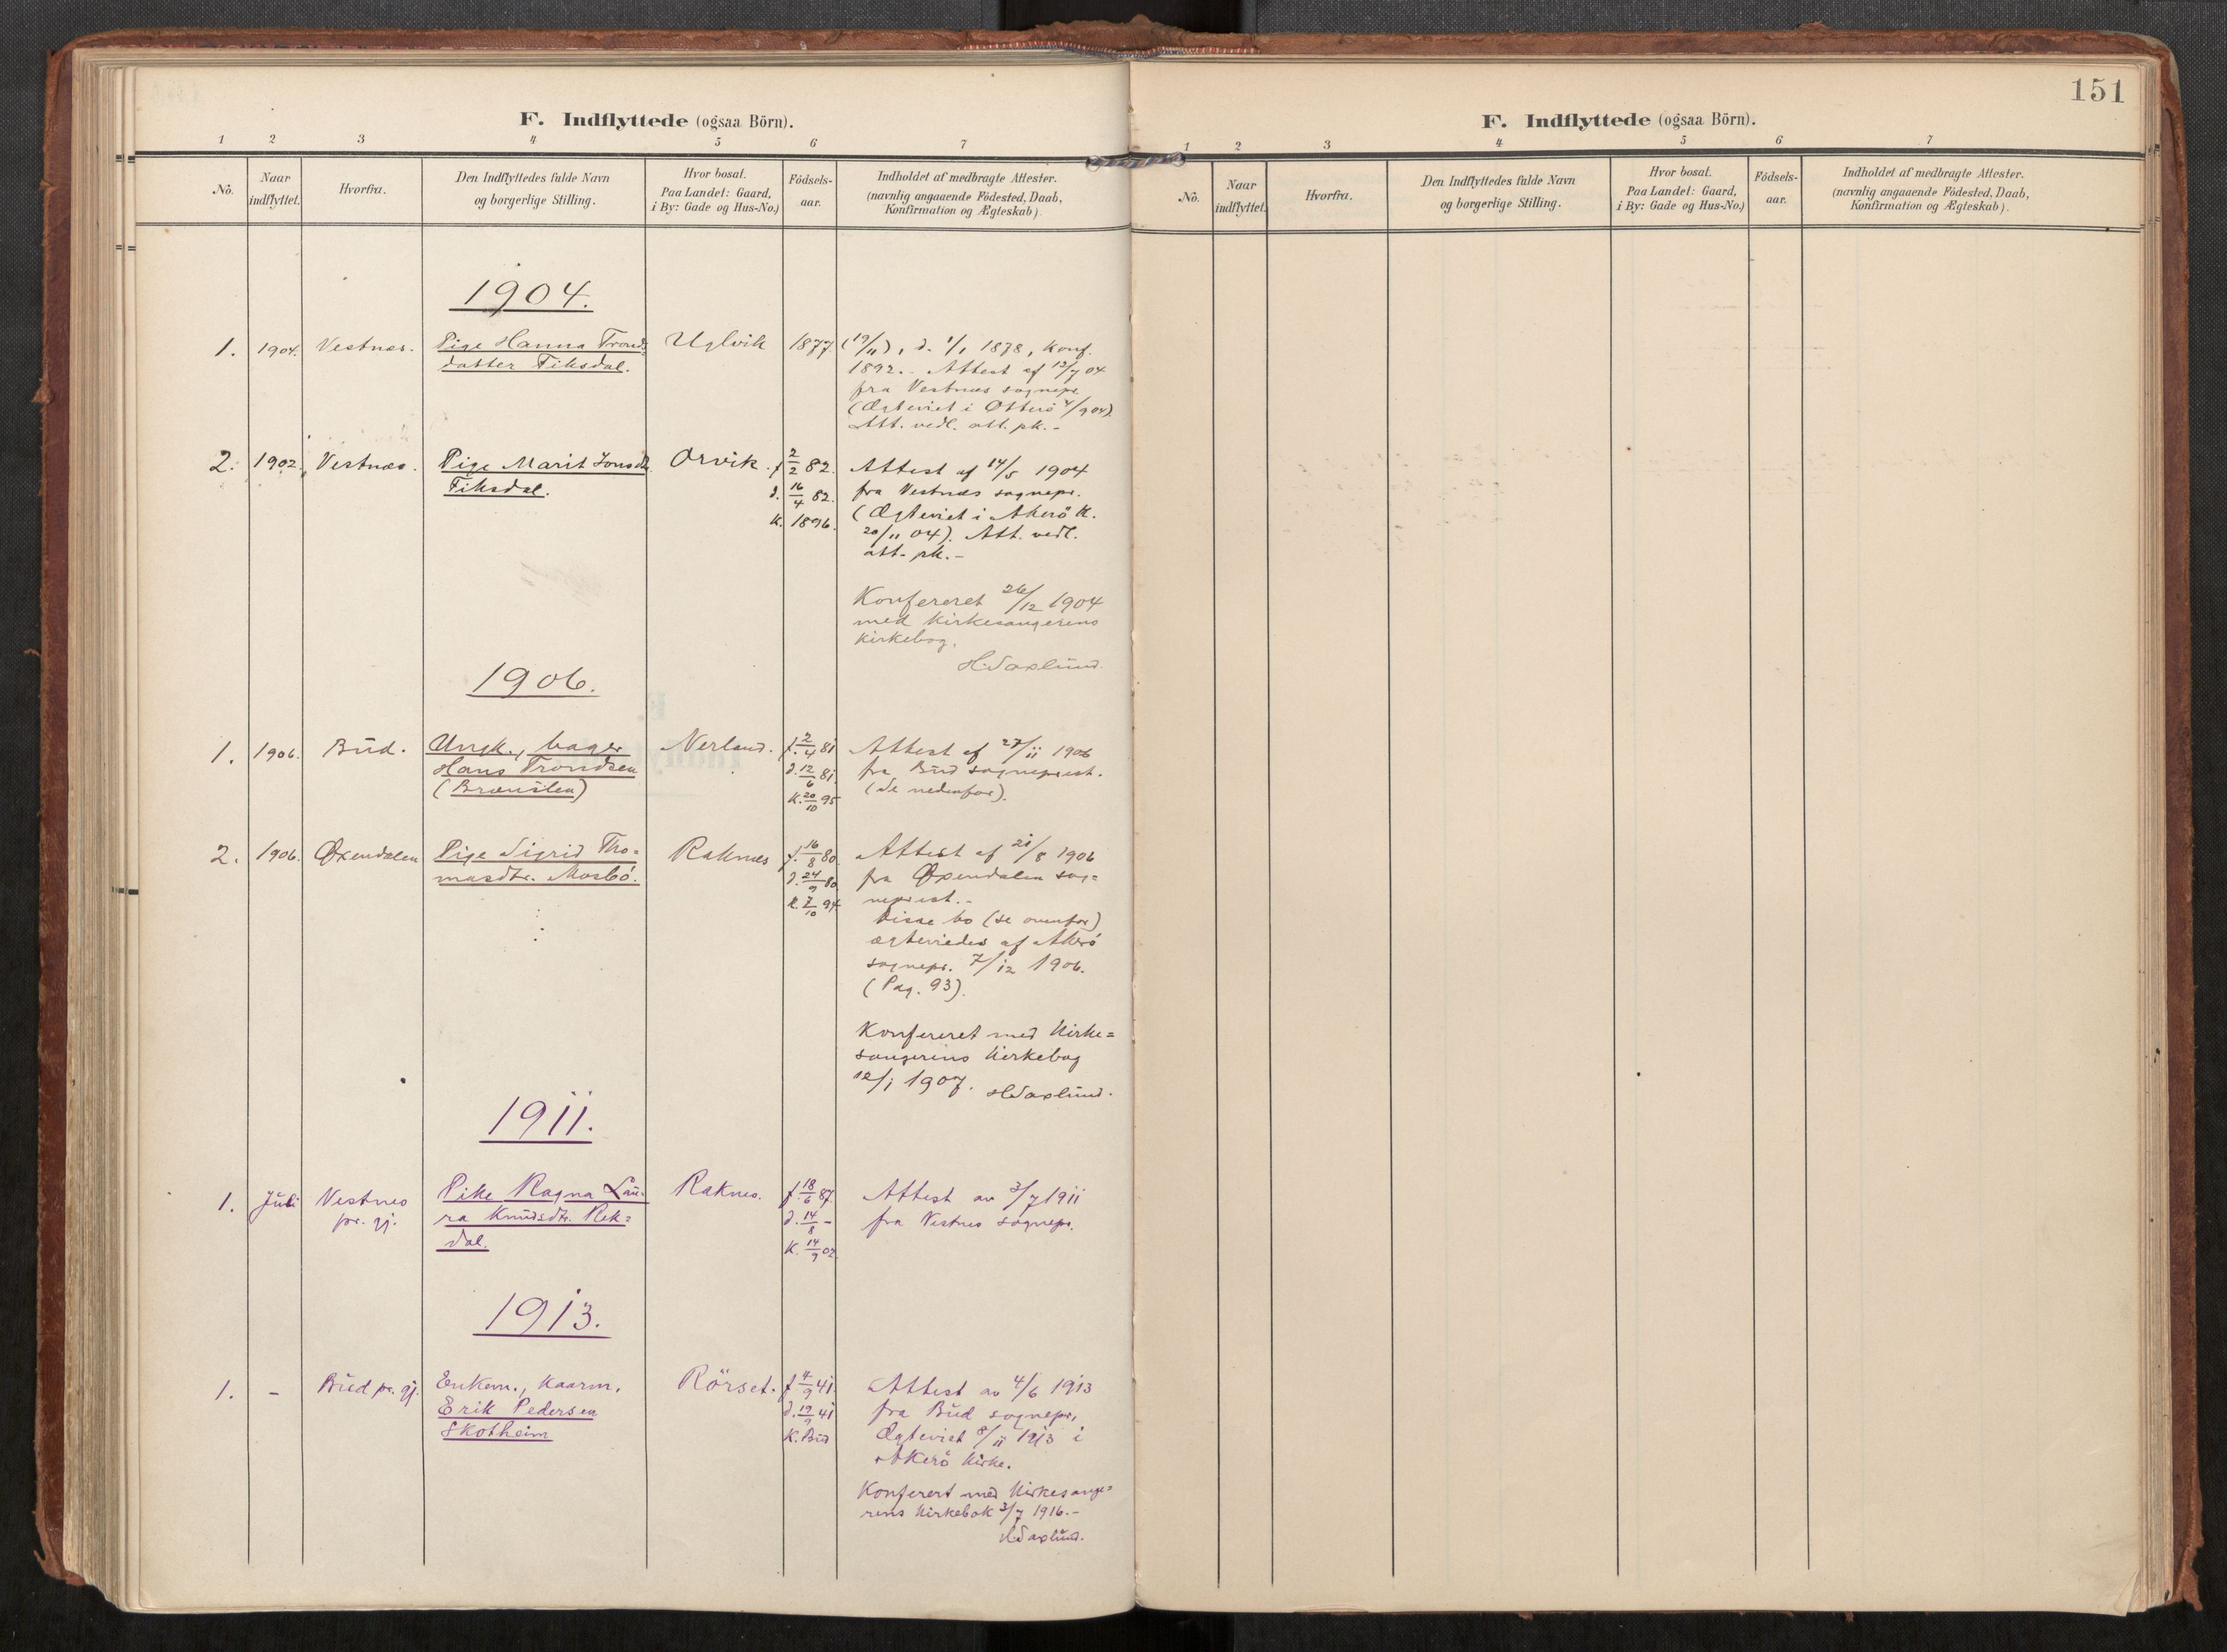 F. Indflyttede (ogsaa Börn).
1 2 3 4 5 6 7
No. Naar indflyttet. Hvorfra. Den Indflyttedes fulde Navn og borgerlige Stilling. Hvor bosat. Paa Landet: Gaard, i By: Gade og Hus-No.) Födsels-aar. Indholdet af medbragte Attester. (navnlig angaaende Födested, Daab, Konfirmation og Ægteskab).
1904.
1. 1904. Vestnæs. Pige Hanna Tronds- Uglvik 1877 (19/11), d. 1/1 1878, Konf.
datter Fiksdal. 1892. - Attest af 13/7 04
fra Vestnæs sognepr.
(Ægteviet i Otterö 4/9 04).
Att. vedl. att. pk. -
2. 1902. Vestnæs. Pige Marit Jonsdtr. Orvik. f 2/2 82. Attest af 14/5 1904
Fiksdal. d. 16/4 82. fra Vestnæs sognepr.
K. 1896. (Ægteviet i Akerö K.
20/11 04). Att. vedl.
att. pk. -
Konfereret 26/12 1904
med Kirkesangerens
Kirkebog.
H. Saxlund.
1906.
1. 1906. Bud. Ungk., bager Nerland. f. 2/4 81 Attest af 27/11 1906
Hans Trondsen d. 12/6 81. fra Bud sogneprest.
K. 20/10 95 (Se nedenfor).
2. 1906. Øxendalen Pige Sigrid Tho= Raknæs f. 16/8 80. Attest af 21/8 1906
masdtr. Mosbö. d. 24/9 80 fra Øxendalen sog=
K. 7/10 94. neprest. -
Disse to (se ovenfor)
ægteviedes af Akerö
sognepr. 7/12 1906.
(Pag. 93).
Konfereret med Kirke=
sangerens Kirkebog
12/1 1907. H. Saxlund.
1911.
1. Juli Vestnes Pike Ragna Lau- Raknes. f. 18/6 87. Attest av 3/7 1911
pr. gj. ra Knudsdtr. Rek= d. 14/8 - fra Vestnes sognepr.
dal. K. 14/9 02.
1913.
1. - Bud pr. gj. Enkem., Kaarm. Rörset. f 4/9 41. Attest av 4/6 1913
Erik Pedersen d. 19/9 41 fra Bud sognepr.
Skotheim K. Bud Ægteviet 8/11 1913 i
Akerö Kirke.
Konferert med Kirkesange=
rens Kirkebok 3/7 1916. -
H. Saxlund.
151
F. Indflyttede (ogsaa Börn).
1 2 3 4 5 6 7
No. Naar indflyttet. Hvorfra. Den Indflyttedes fulde Navn og borgerlige Stilling. Hvor bosat. Paa Landet: Gaard, i By: Gade og Hus-No.) Födsels-aar. Indholdet af medbragte Attester. (navnlig angaaende Födested, Daab, Konfirmation og Ægteskab).